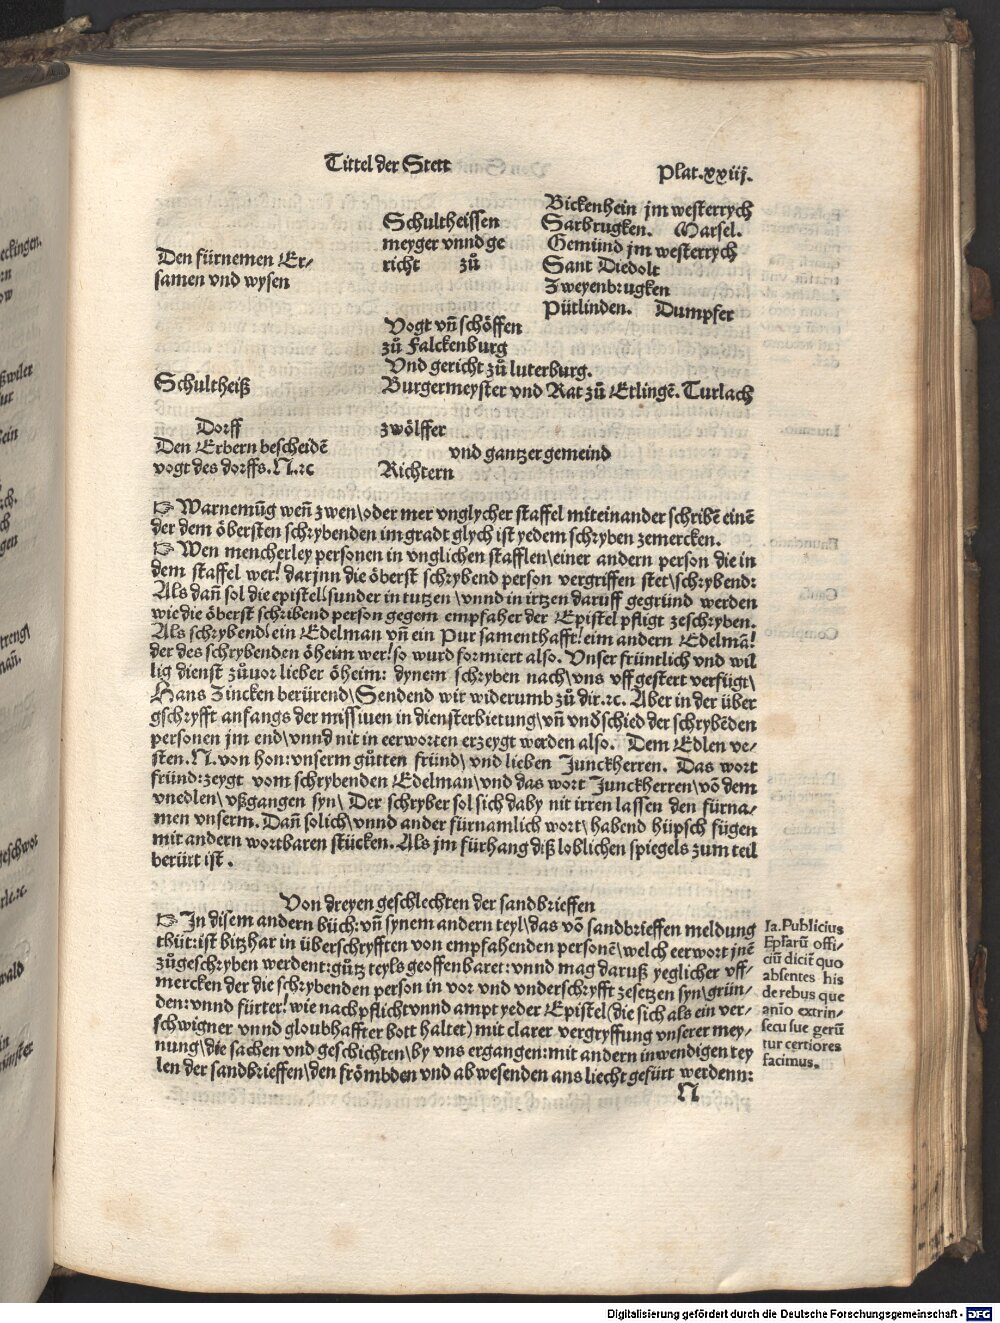 Tittel der Stett
Plat.xxiij.
Den fürnemen Er-
samen vnd wysen
Schultheissen
meyger vnnd ge
richt zů
Bickenhein jm westerrych
Sarbrugken. Marsel.
Gemünd jm westerrych
Sant Diedolt
Zweyenbrugken
Pütlinden. Dumpfer
Vogt vn̄ schöffen
zů Falckenburg
Vnd gericht zů luterburg.
Schultheiß
Burgermeyster vnd Rat zů Etlingē. Turlach
Dorff
Den Erbern bescheidē
vogt des dorffs. N.ꝛc
zwölffer
vnd gantzer gemeind
Richtern
☞ Warnemūg wen̄ zwen\oder mer vnglycher staffel miteinander schribē einē
der dem öbersten schrybenden im gradt glych ist yedem schryben zemercken.
☞ Wen mencherley personen in vnglichen stafflen\einer andern person die in
dem staffel wer! darjnn die öberst schrybend person vergriffen stet\schrybend:
Als dan̄ sol die epistel\sunder in tutzen\vnnd in irtzen daruff gegründ werden
wie die öberst schribend person gegem empfaher der Epistel pfligt zeschryben.
Als schrybend! ein Edelman vn̄ ein Pur samenthafft! eim andern Edelmā!
der des schrybenden öheim wer! so wurd formiert also. Vnser früntlich vnd wil
lig dienst zůuor lieber öheim: dynem schryben nach\vns vff gestert verfügt\
Hans Zincken berürend\Sendend wir widerumb zů dir.ꝛc. Aber in der über
gschryfft anfangs der missiuen in diensterbietung\vn̄ vnd̄schied der schrybēden
personen jm end\vnnd nit in eerworten erzeygt werden also. Dem Edlen ve-
sten. N. von hon: vnserm gůtten fründ\vnd lieben Junckherren. Das wort
fründ: zeygt vom schrybenden Edelman\vnd das wort Junckherren\vō dem
vnedlen\vßgangen syn\ Der schryber sol sich daby nit irren lassen den fürna-
men vnserm. Dan̄ solich\vnnd ander fürnamlich wort\habend hüpsch fügen
mit andern wortbaren stücken. Als jm fürhang diß loblichen spiegels zum teil
berürt ist.
Von dreyen geschlechten der sandbrieffen
☞ In disem andern bůch: vn̄ synem andern teyl\das vō sandbrieffen meldung
thůt: ist bitzhar in überschryfften von empfahenden personē\welch eerwort jnē
zůgeschryben werdent: gůtz teyls geoffenbaret: vnnd mag daruß yeglicher vff-
mercken der die schrybenden person in vor vnd vnderschryfft zesetzen syn\grün-
den: vnnd fürter! wie nach pflicht vnnd ampt yeder Epistel (die sich als ein ver-
schwigner vnnd gloubhaffter bott haltet) mit clarer vergryffung vnserer mey-
nung\die sachen vnd geschichten\by vns ergangen: mit andern inwendigen tey
len der sandbrieffen\den frömbden vnd abwesenden ans liecht gefürt werdenn:
N
Ia. Publicius
Ep̄raru̅ offi-
ciū dicit̄ quo
absentes his
de rebus que
anīo extrin-
secu sue gerū
tur certiores
facimus.
eckingen.
ßwiler
Digitalisierung gefördert durch die Deutsche Forschungsgemeinschaft - DFG